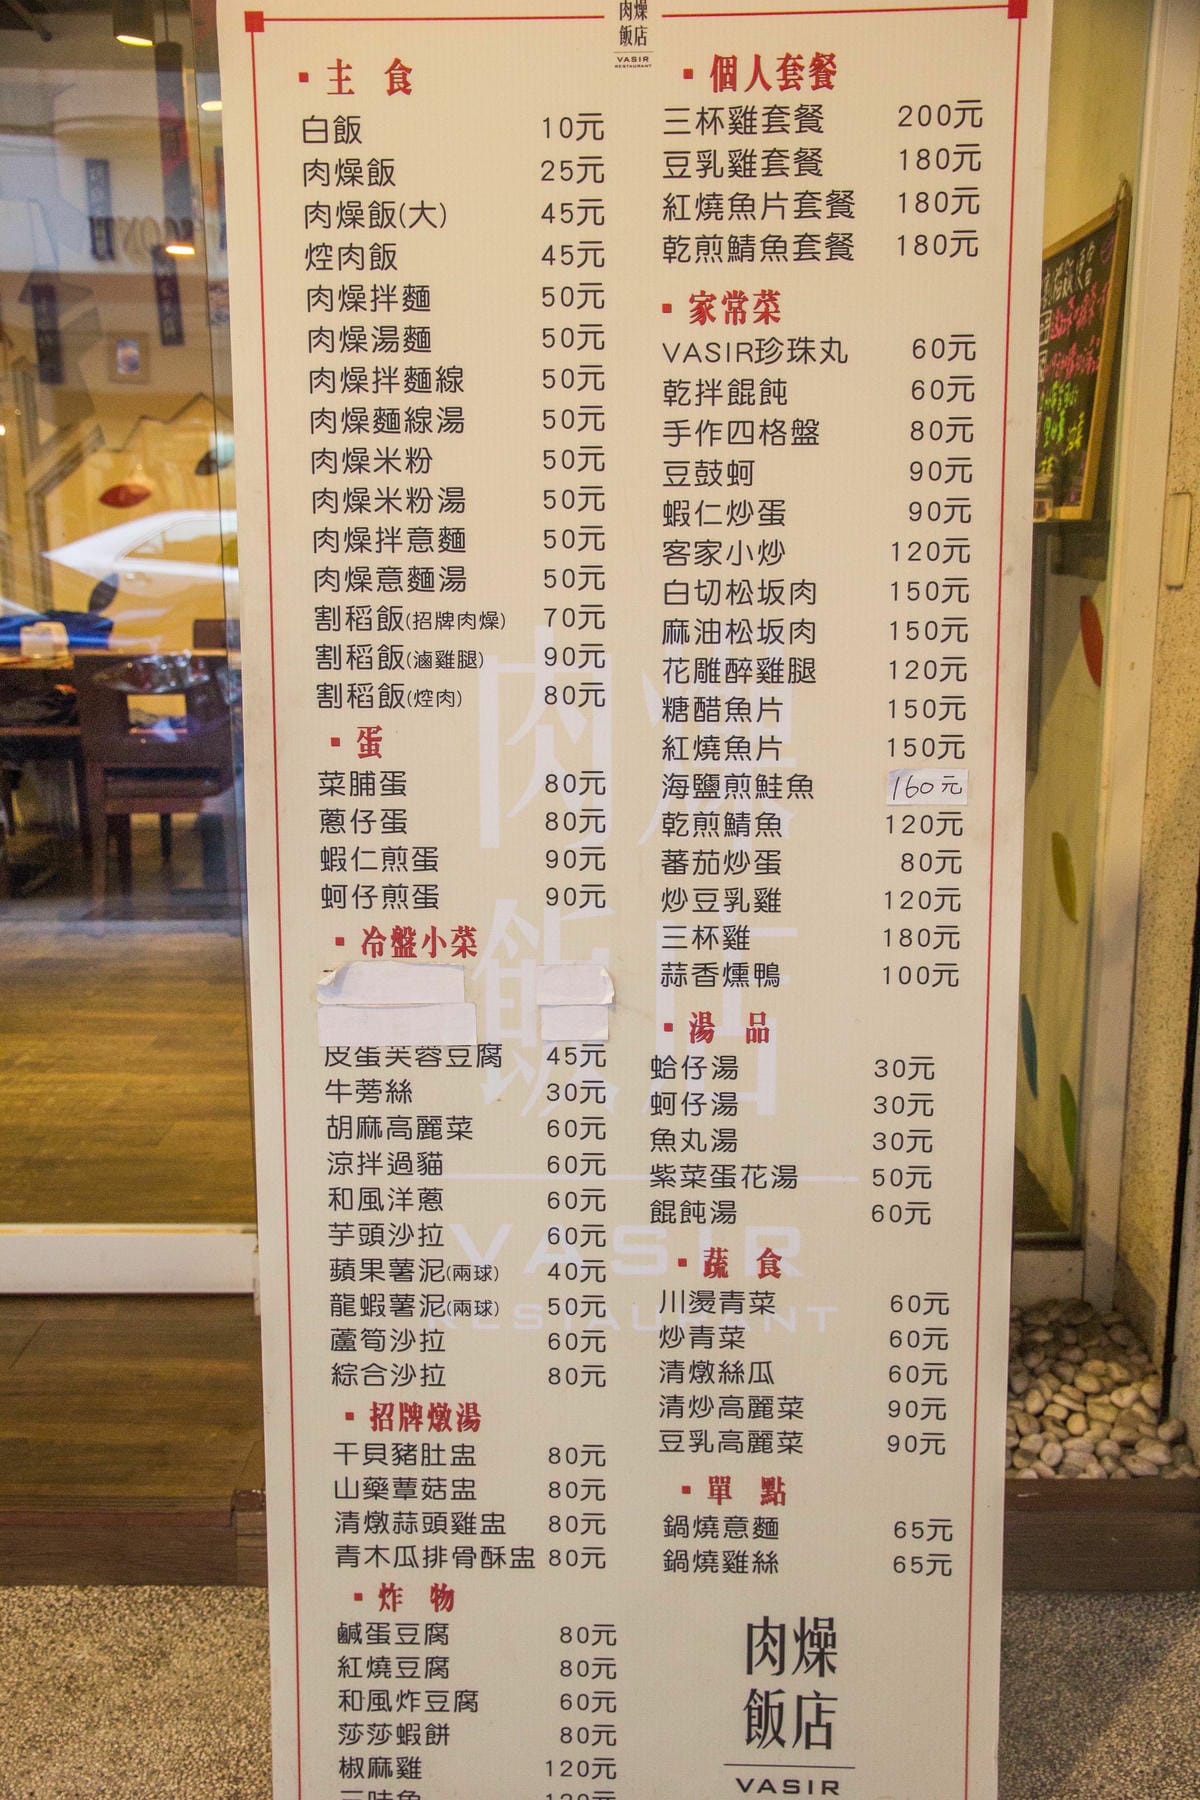 肉燥
飯店
VASIR
RESTAURANT
主 食
白飯 10元
肉燥飯 25元
肉燥飯(大) 45元
焢肉飯 45元
肉燥拌麵 50元
肉燥湯麵 50元
肉燥拌麵線 50元
肉燥麵線湯 50元
肉燥米粉 50元
肉燥米粉湯 50元
肉燥拌意麵 50元
肉燥意麵湯 50元
割稻飯(招牌肉燥) 70元
割稻飯(滷雞腿) 90元
割稻飯(焢肉) 80元
蛋
菜脯蛋 80元
蔥仔蛋 80元
蝦仁煎蛋 90元
蚵仔煎蛋 90元
冷盤小菜
皮蛋芙蓉豆腐 45元
牛蒡絲 30元
胡麻高麗菜 60元
涼拌過貓 60元
和風洋蔥 60元
芋頭沙拉 60元
蘋果薯泥(兩球) 40元
龍蝦薯泥(兩球) 50元
蘆筍沙拉 60元
綜合沙拉 80元
招牌燉湯
干貝豬肚盅 80元
山藥蕈菇盅 80元
清燉蒜頭雞盅 80元
青木瓜排骨酥盅 80元
炸 物
鹹蛋豆腐 80元
紅燒豆腐 80元
和風炸豆腐 60元
莎莎蝦餅 80元
椒麻雞 120元
個人套餐
三杯雞套餐 200元
豆乳雞套餐 180元
紅燒魚片套餐 180元
乾煎鯖魚套餐 180元
家常菜
VASIR珍珠丸 60元
乾拌餛飩 60元
手作四格盤 80元
豆鼓蚵 90元
蝦仁炒蛋 90元
客家小炒 120元
白切松坂肉 150元
麻油松坂肉 150元
花雕醉雞腿 120元
糖醋魚片 150元
紅燒魚片 150元
海鹽煎鮭魚 160元
乾煎鯖魚 120元
蕃茄炒蛋 80元
炒豆乳雞 120元
三杯雞 180元
蒜香燻鴨 100元
湯 品
蛤仔湯 30元
蚵仔湯 30元
魚丸湯 30元
紫菜蛋花湯 50元
餛飩湯 60元
蔬 食
川燙青菜 60元
炒青菜 60元
清燉絲瓜 60元
清炒高麗菜 90元
豆乳高麗菜 90元
單 點
鍋燒意麵 65元
鍋燒雞絲 65元
肉燥
飯店
VASIR
肉燥
飯店
VASIR
RESTAURANT